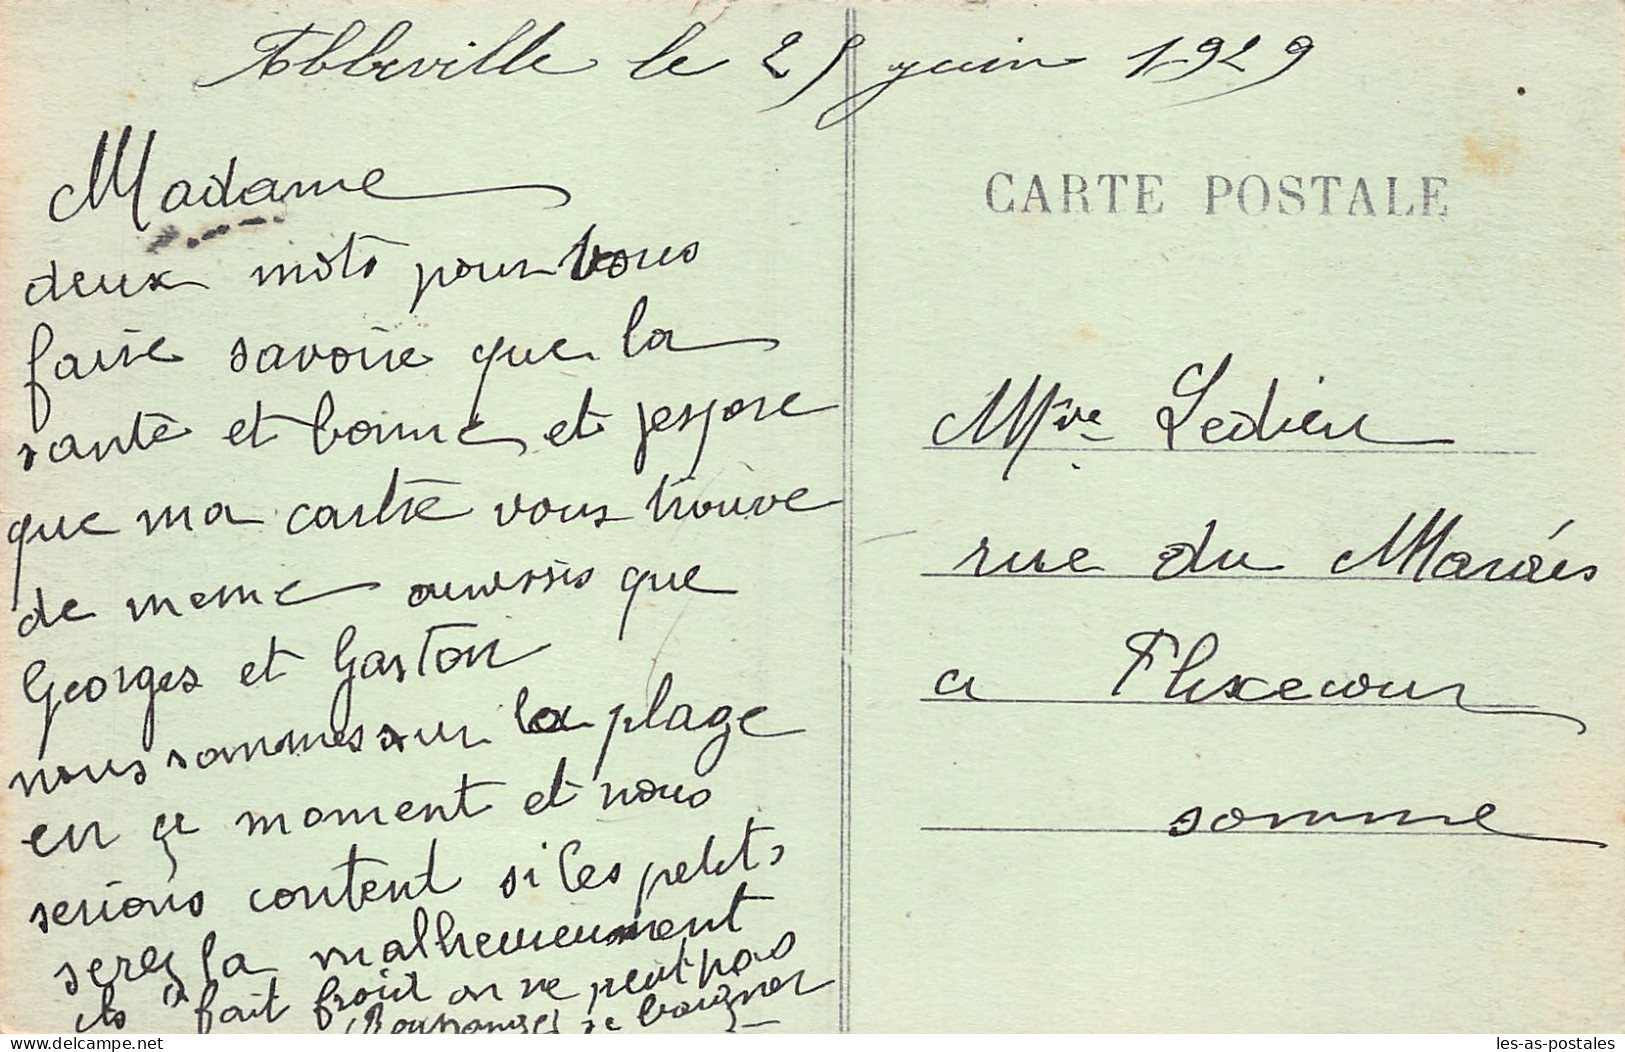 Abbeville le 25 juin 1929
Madame
deux mots pour vous
faire savoir que la
santé et bonne et jespore
que ma cartre vous trouve
de meme ausssis que
Georges et Gaston
nous sommes sur la plage
en ce moment et nous
serions content si les petits
serez la malheureument
ils fait froid on ne peut pas
se baigner
CARTE POSTALE
Mve Ledieu
rue du Marais
a Flixecour
somme
les-as-postales.net
les-as-postales